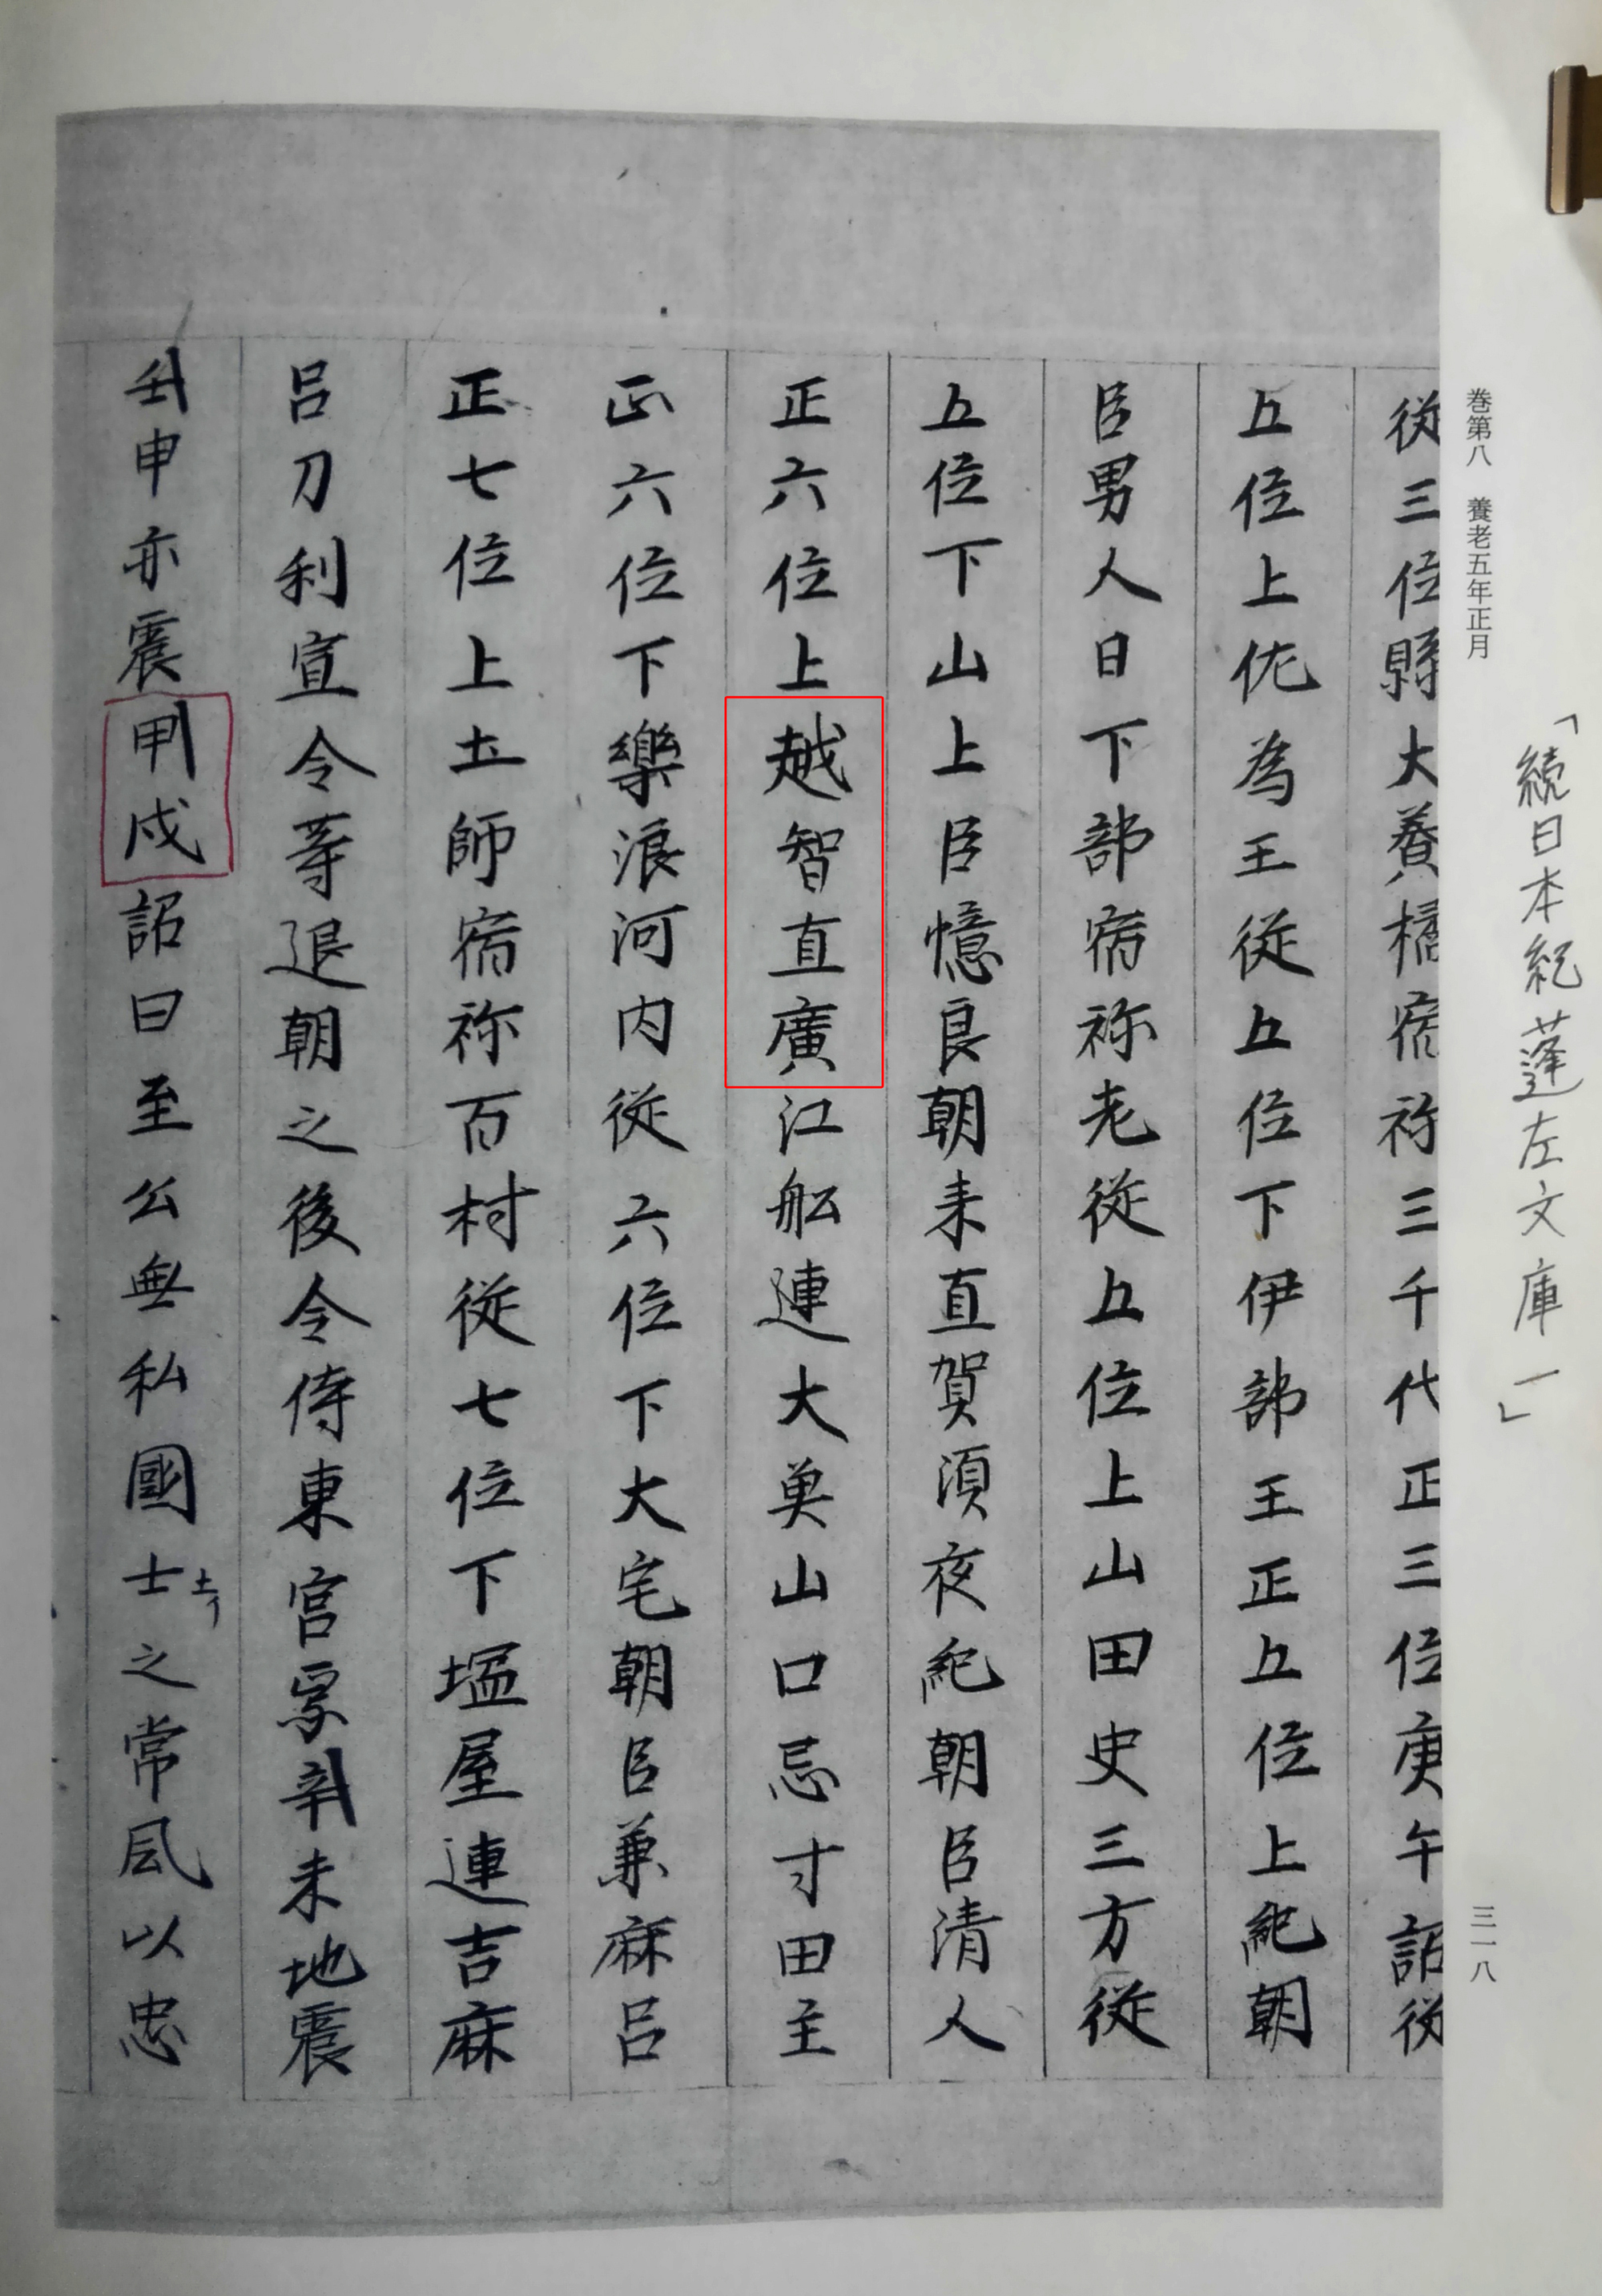 「続日本紀蓬左文庫一」
巻第八　養老五年正月
三一八
従三位縣大養橘宿祢三千代正三位庚午詔従
五位上佐為王従五位下伊部王正五位上紀朝
臣男人日下部宿祢老従五位上山田史三方従
五位下山上臣憶良朝来直賀須夜紀朝臣清人
正六位上越智直廣江舩連大魚山口忌寸田主
正六位下樂浪河内従六位下大宅朝臣兼麻呂
正七位上土師宿祢百村従七位下塩屋連吉麻
呂刀利宣令等退朝之後令侍東宮焉辛未地震
壬申亦震甲戌詔曰至公無私國士之常風以忠
土イ